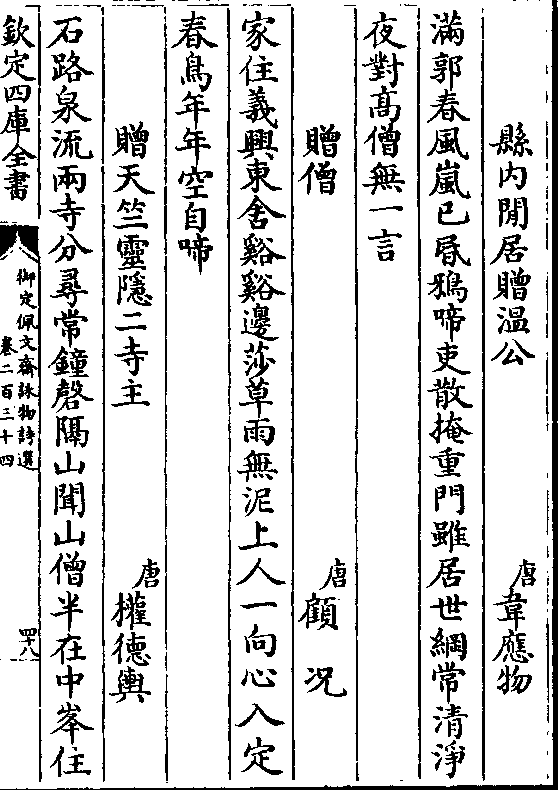 縣内閒居贈溫公　唐韋應物
滿郭春風嵐已昏鴉啼吏散掩重門雖居世網常清淨
夜對髙僧無一言
贈僧　唐顧況
家住義興東舍谿谿邊莎草雨無泥上人一向心入定
春鳥年年空自啼
贈天竺靈隱二寺主　唐權德輿
石路泉流兩寺分尋常鐘磬隔山聞山僧半在中峯住
欽定四庫全書
御定佩文齋詠物詩選
卷二百三十四
四十八